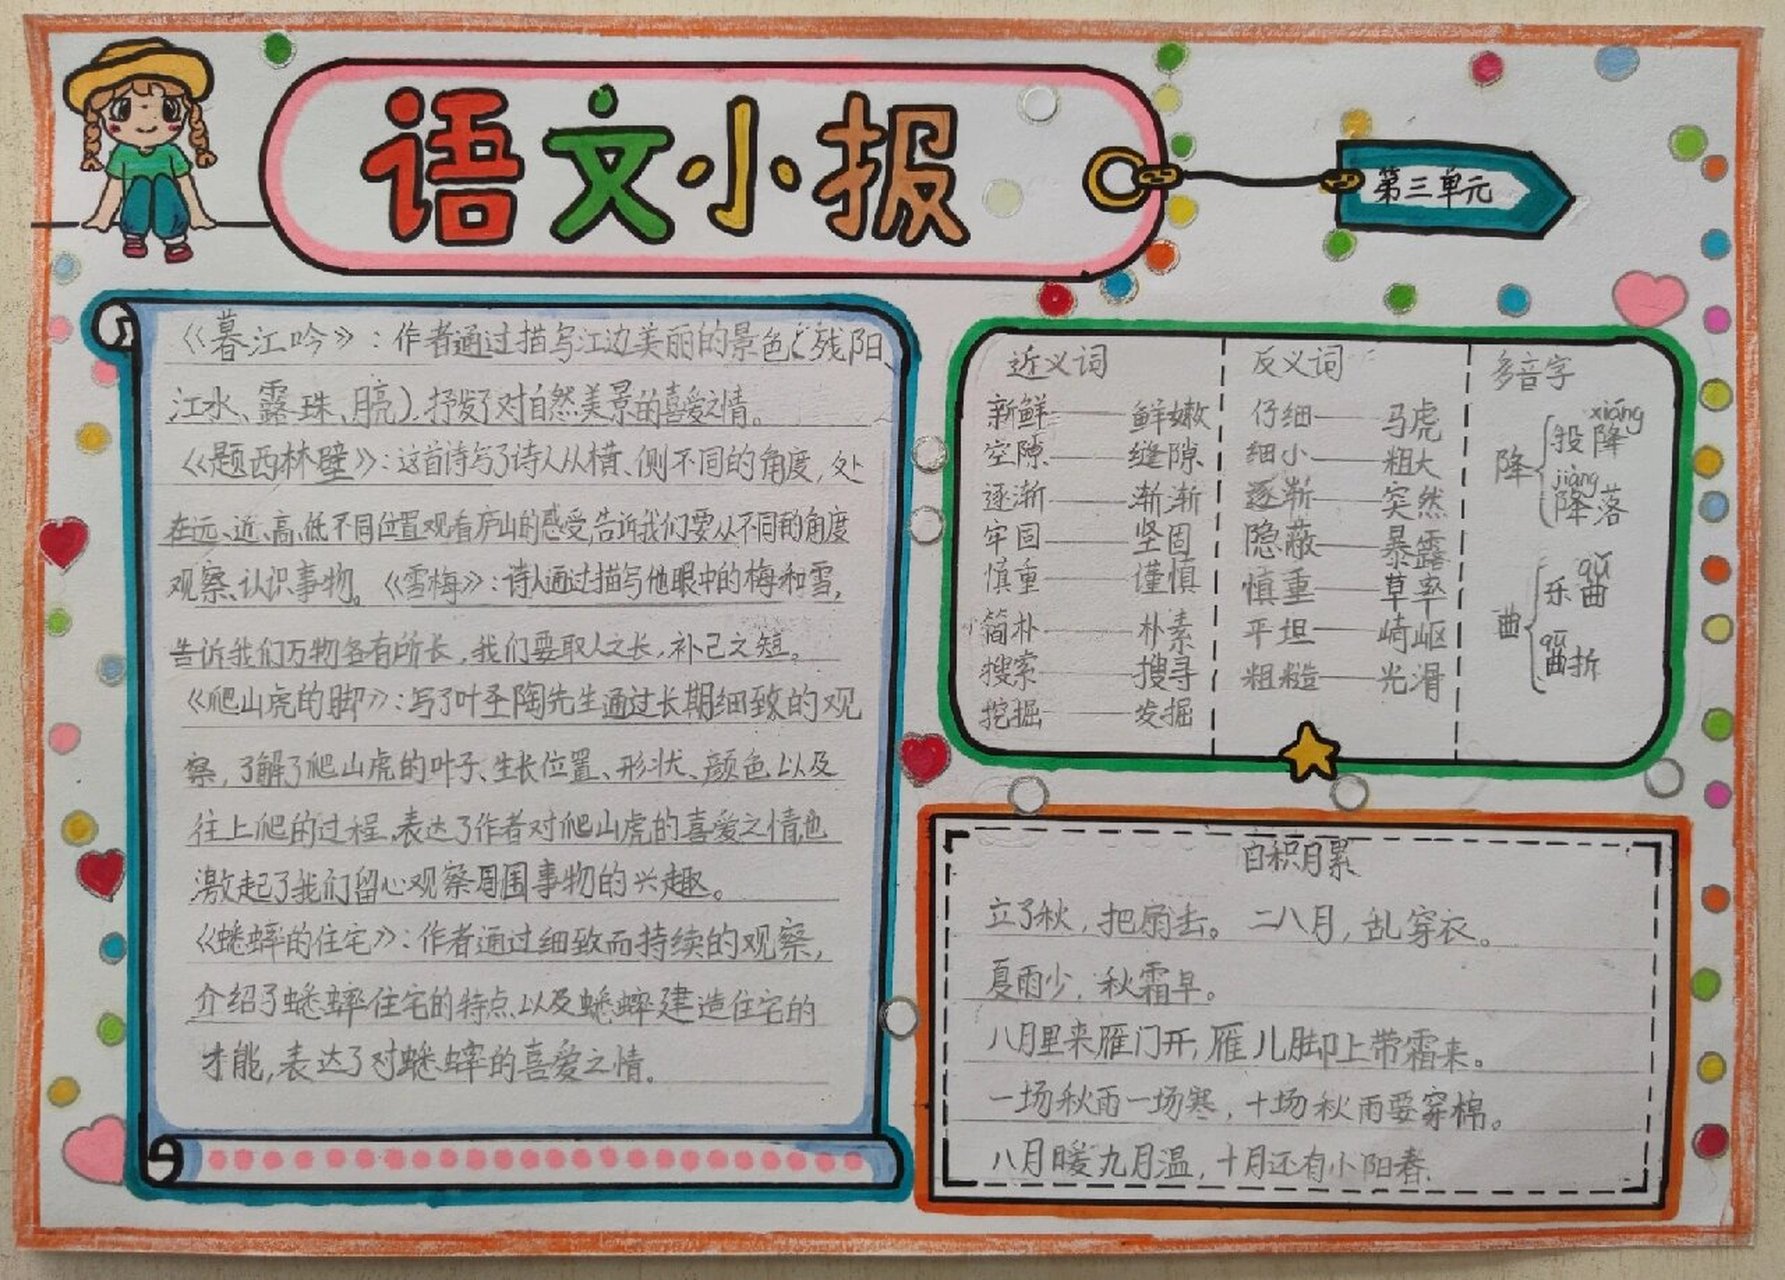 语文小报
第三单元
《暮江吟》：作者通过描写江边美丽的景色（残阳、
江水、露珠、月亮），抒发了对自然美景的喜爱之情。
《题西林壁》：这首诗写了诗人从横、侧不同的角度，处
在远、近、高、低不同位置观看庐山的感受，告诉我们要从不同的角度
观察、认识事物。《雪梅》：诗人通过描写他眼中的梅和雪，
告诉我们万物各有所长，我们要取人之长，补己之短。
《爬山虎的脚》：写了叶圣陶先生通过长期细致的观
察，了解了爬山虎的叶子、生长位置、形状、颜色以及
往上爬的过程，表达了作者对爬山虎的喜爱之情，也
激起了我们留心观察周围事物的兴趣。
《蟋蟀的住宅》：作者通过细致而持续的观察，
介绍了蟋蟀住宅的特点以及蟋蟀建造住宅的
才能，表达了对蟋蟀的喜爱之情。
近义词
新鲜——鲜嫩
空隙——缝隙
逐渐——渐渐
牢固——坚固
慎重——谨慎
简朴——朴素
搜索——搜寻
挖掘——发掘
反义词
仔细——马虎
细小——粗大
逐渐——突然
隐蔽——暴露
慎重——草率
平坦——崎岖
粗糙——光滑
多音字
xiáng
投降
降
jiàng
降落
qǔ
乐曲
曲
qū
曲折
日积月累
立了秋，把扇丢。二八月，乱穿衣。
夏雨少，秋霜早。
八月里来雁门开，雁儿脚上带霜来。
一场秋雨一场寒，十场秋雨要穿棉。
八月暖九月温，十月还有小阳春.